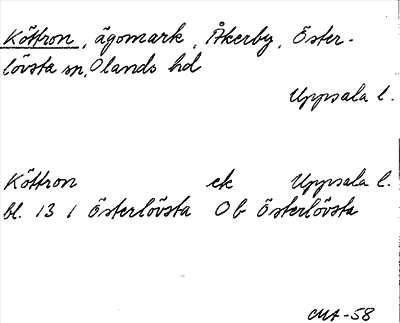 Köttron, ägomark, Åkerby, Öster-
lövsta sn, Olands hd
Uppsala l.
Köttron ek Uppsala l.
bl. 13 1 Österlövsta Ob Österlövsta
CMA-58